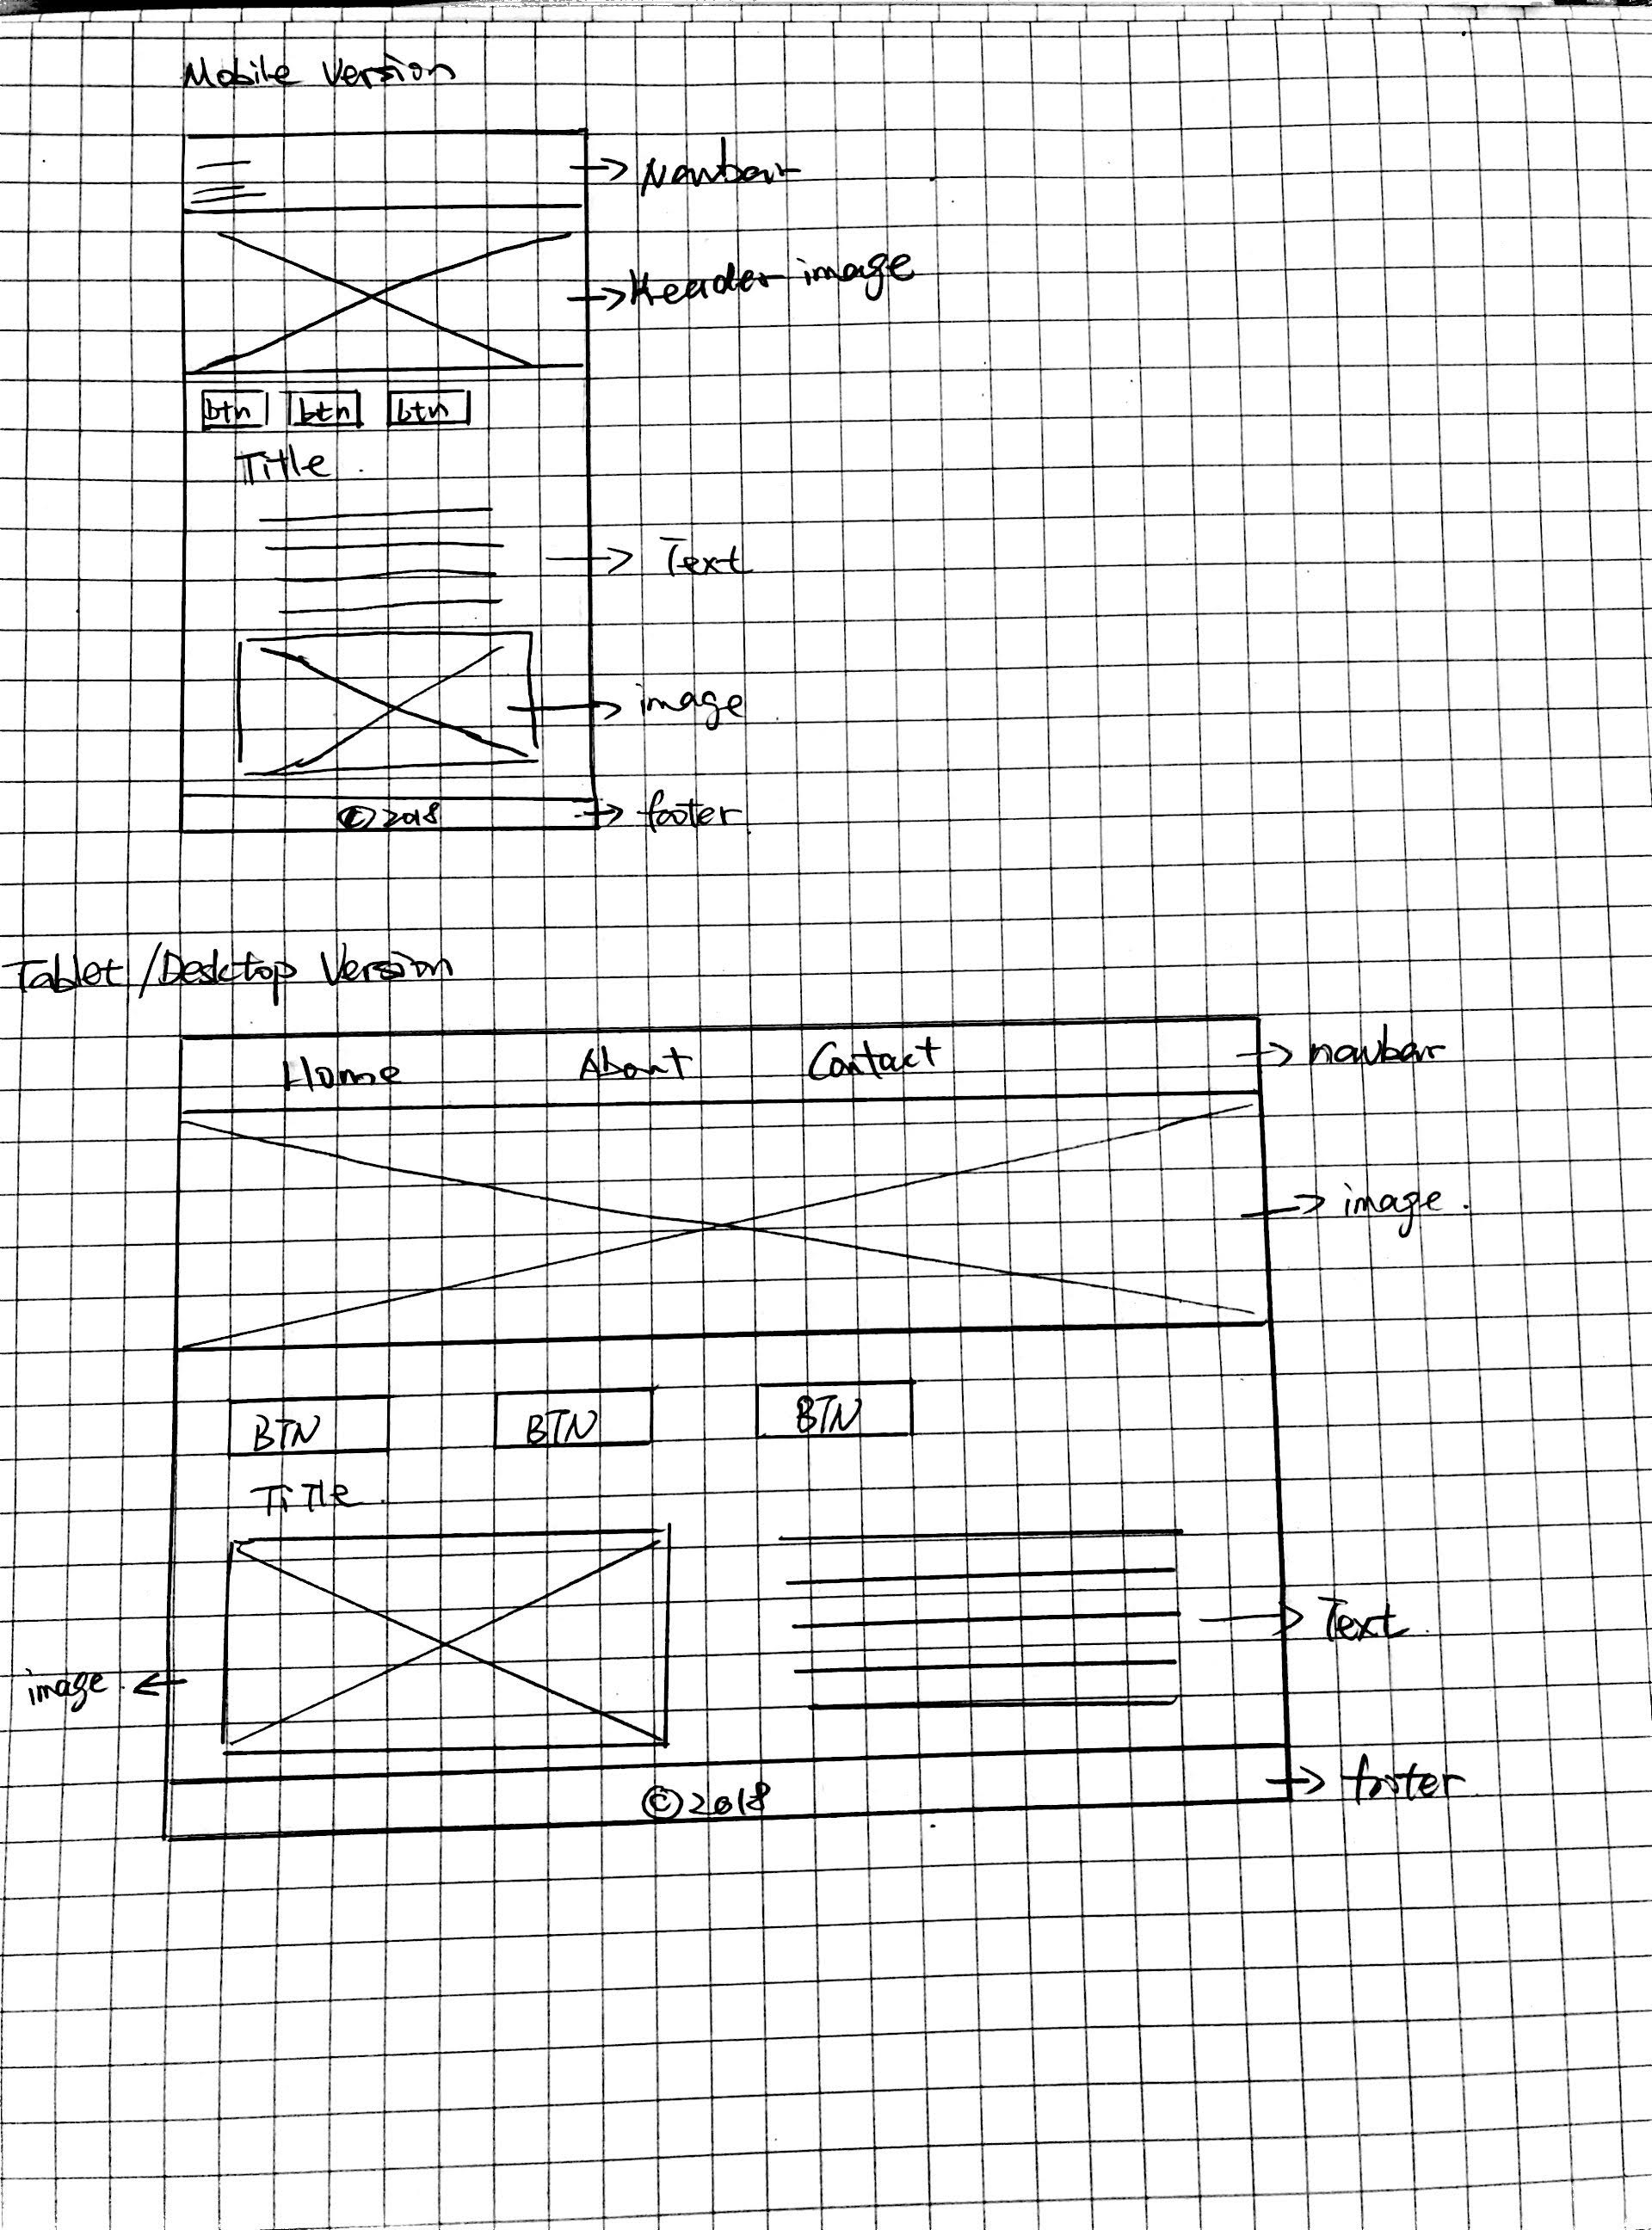 Mobile Version
Navbar
Header image
btn btn btn
Title
Text
image
©2018 footer
Tablet/Desktop Version
Home About Contact navbar
image.
BTN BTN BTN
Title.
Text.
image.
©2018 footer